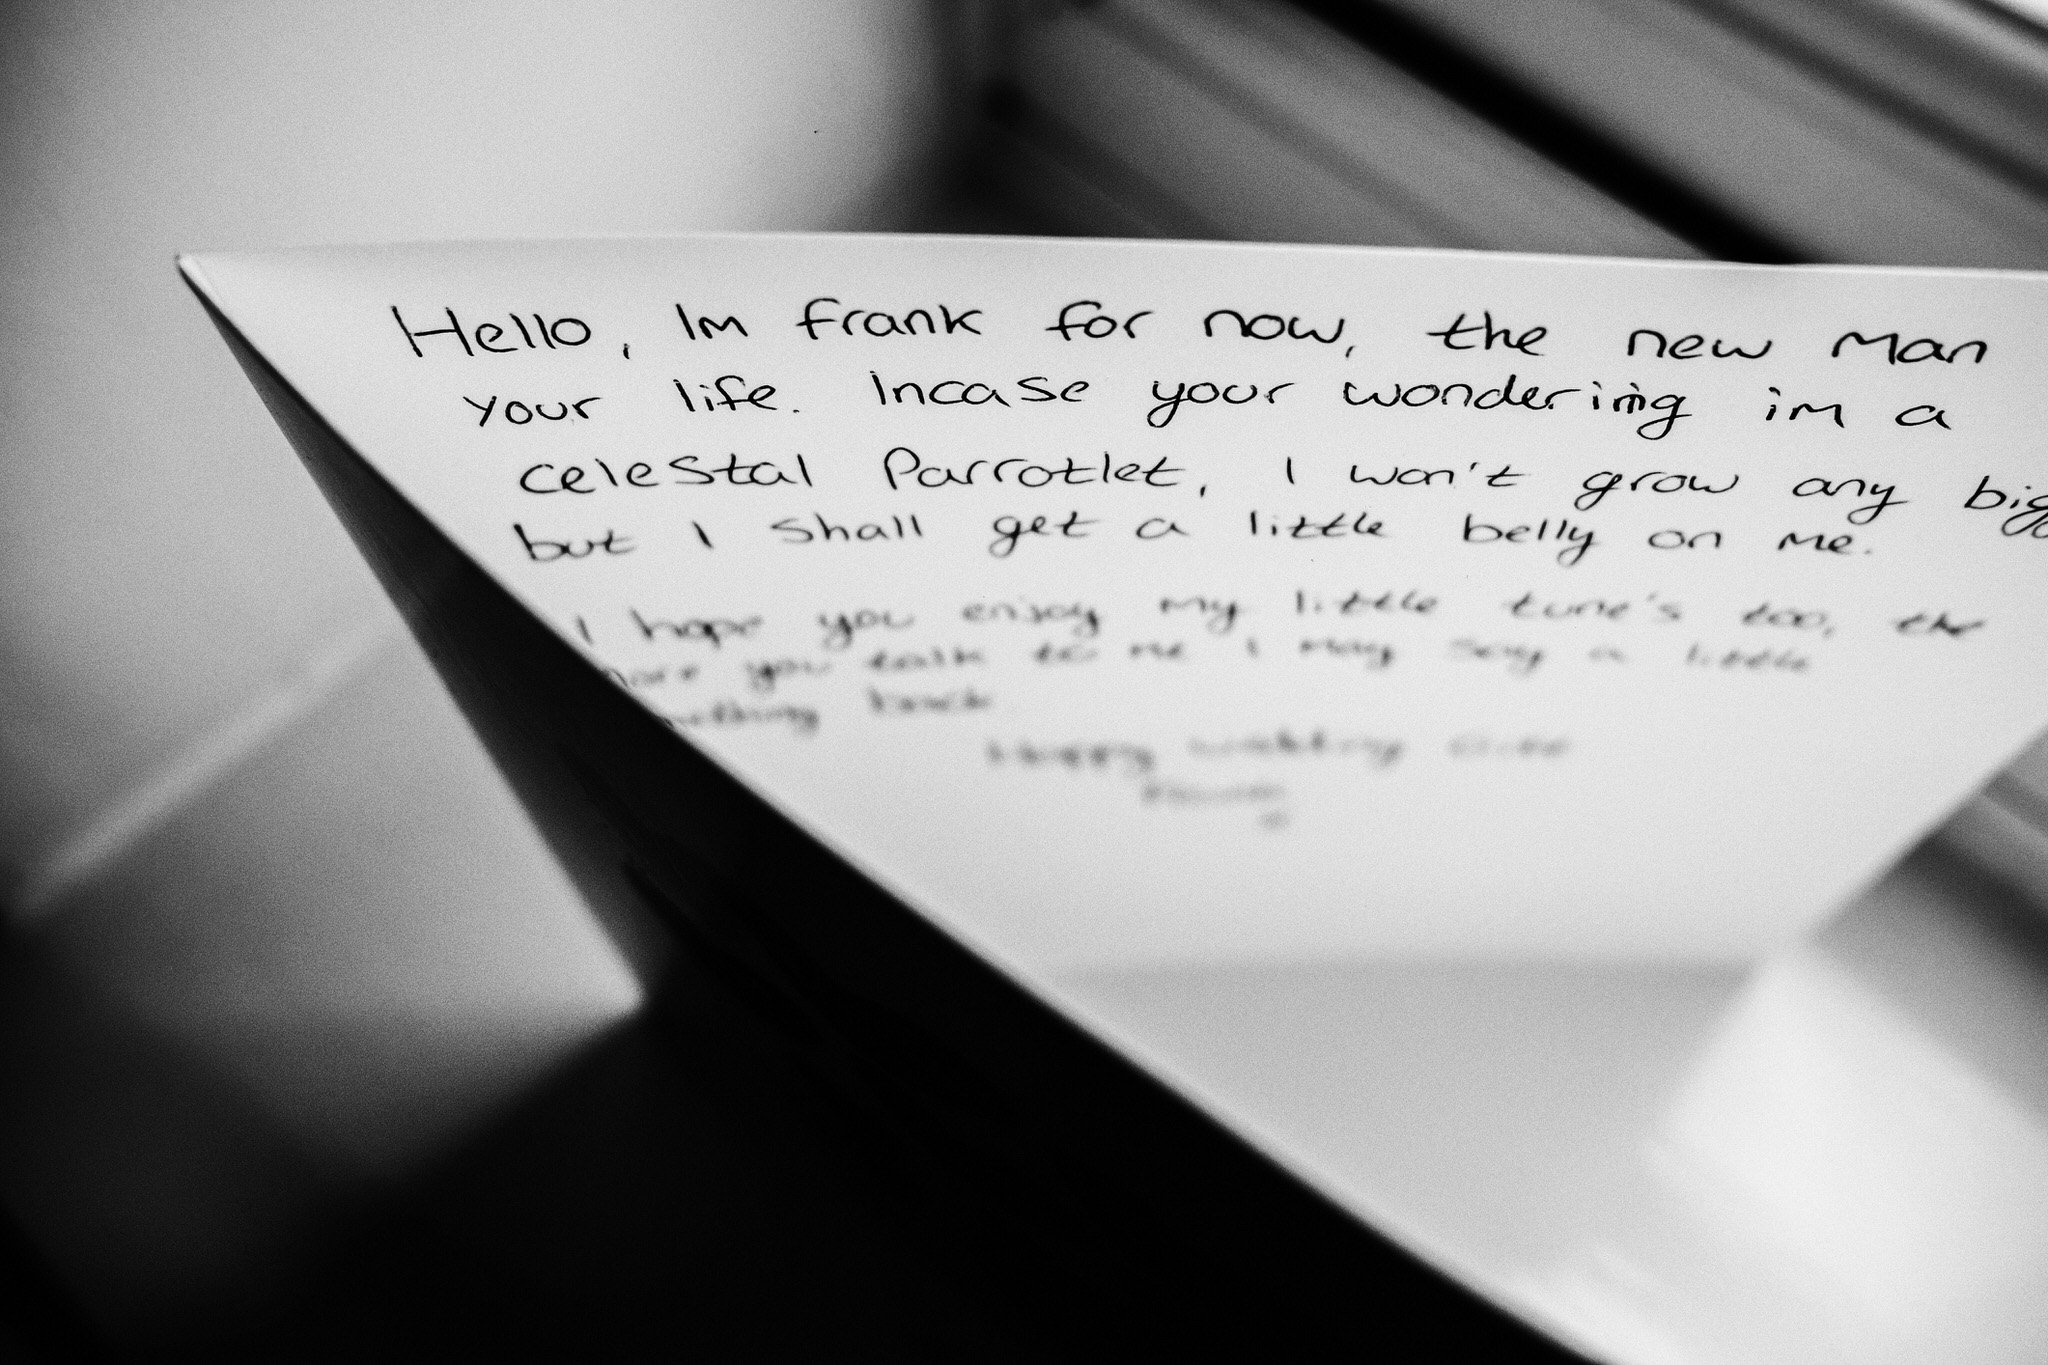 Hello, Im frank for now, the new man
your life. Incase your wondering im a
celestal Parrotlet, I won't grow any
but I shall get a little belly on me.
I hope you enjoy my little tune's too, the
you talk to me I may say a little
back
Happy wedding